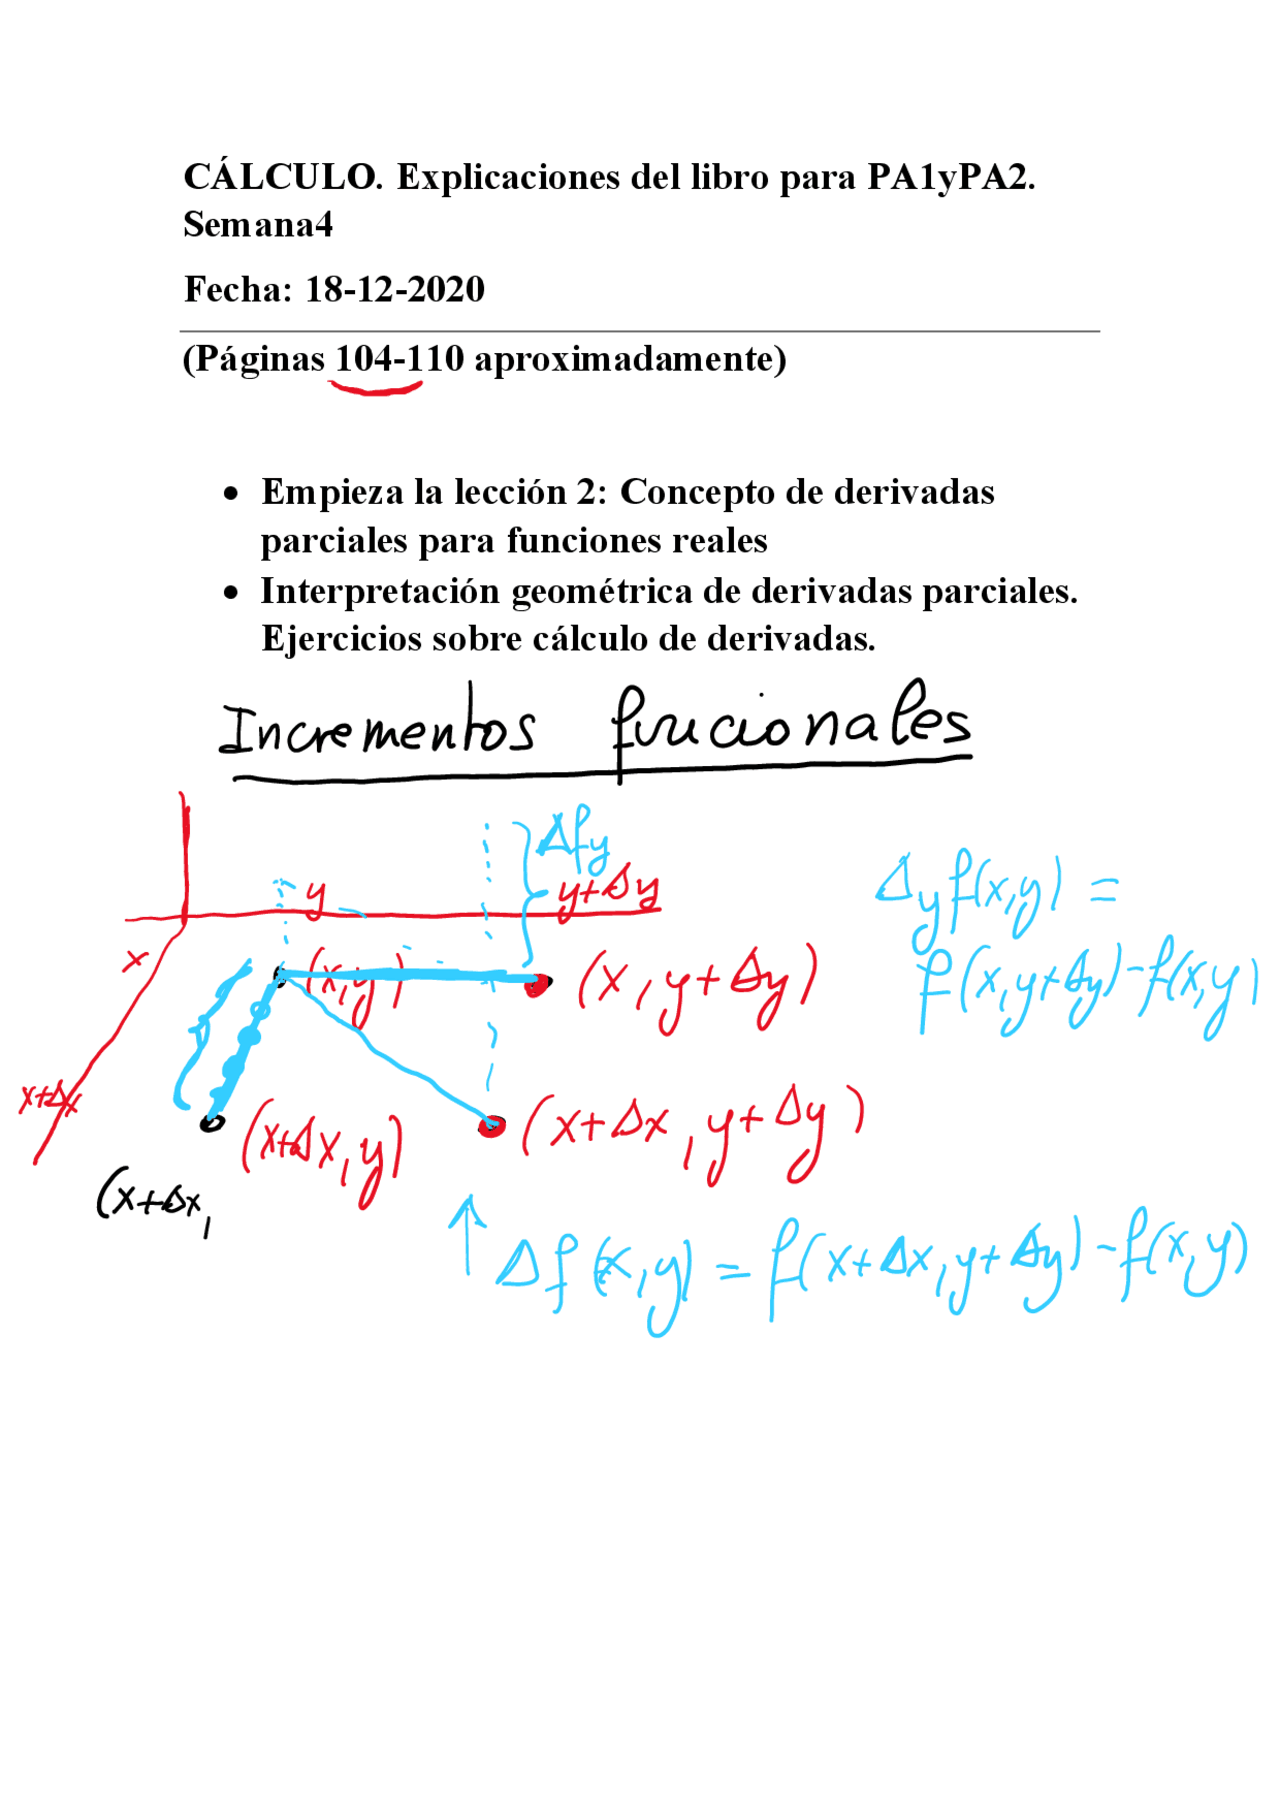 CÁLCULO. Explicaciones del libro para PA1yPA2.
Semana4
Fecha: 18-12-2020
(Páginas 104-110 aproximadamente)
• Empieza la lección 2: Concepto de derivadas
parciales para funciones reales
• Interpretación geométrica de derivadas parciales.
Ejercicios sobre cálculo de derivadas.
Incrementos funcionales
Δfy
y
y+Δy
Δyf(x,y) =
f(x,y+Δy)-f(x,y)
x
(x,y)
(x,y+Δy)
x+Δx
(x+Δx,y)
(x+Δx,y+Δy)
(x+Δx,
↑ Δf(x,y) = f(x+Δx,y+Δy)-f(x,y)